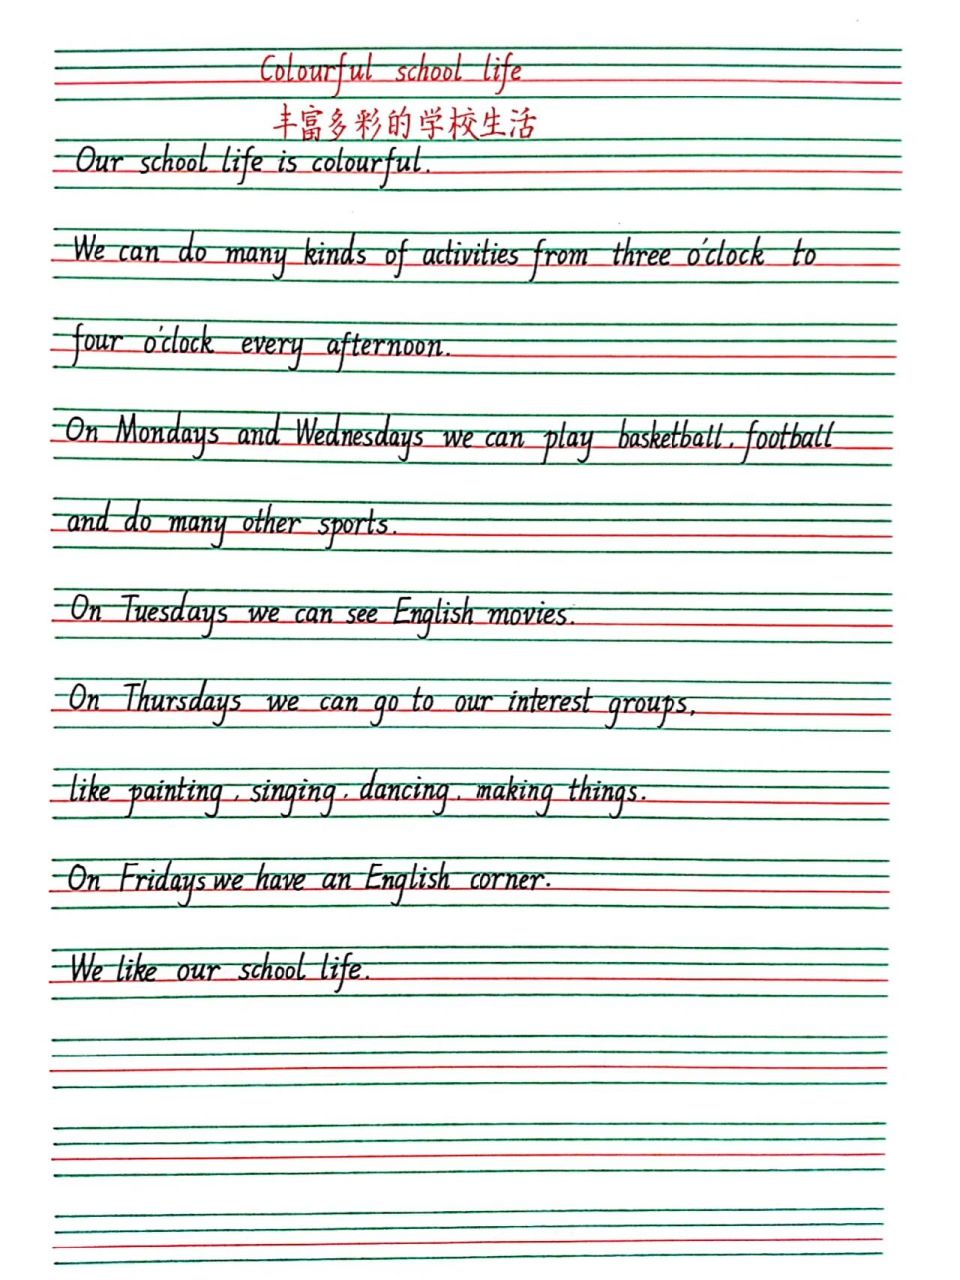 Colourful school life
丰富多彩的学校生活
Our school life is colourful.
We can do many kinds of activities from three o'clock to
four o'clock every afternoon.
On Mondays and Wednesdays we can play basketball, football
and do many other sports.
On Tuesdays we can see English movies.
On Thursdays we can go to our interest groups,
like painting, singing, dancing, making things.
On Fridays we have an English corner.
We like our school life.